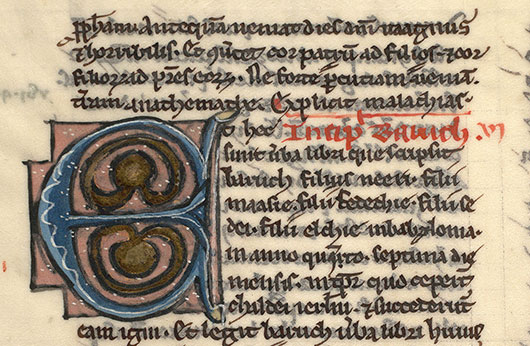 pphetam. Antequam veniat dies dni magnus
& horribilis. Et c̄uertet cor patrum ad filios. & cor
filiorum ad pres eorum. Ne forte percutiam veniam.
terram anathemathe. Explicit malachias.
Et hec Incip Baruch. VI
sunt v̄ba libri que scripsit
baruch filius neeri. filii
maasie. filii sedechie. filii se
dei. filii elchie in babylonia.
in anno quinto. septima die
mensis. in tp̄r quo ceperūt
chaldei ierl̄m. & succederunt
eam igni. Et legit baruch v̄ba libri huius